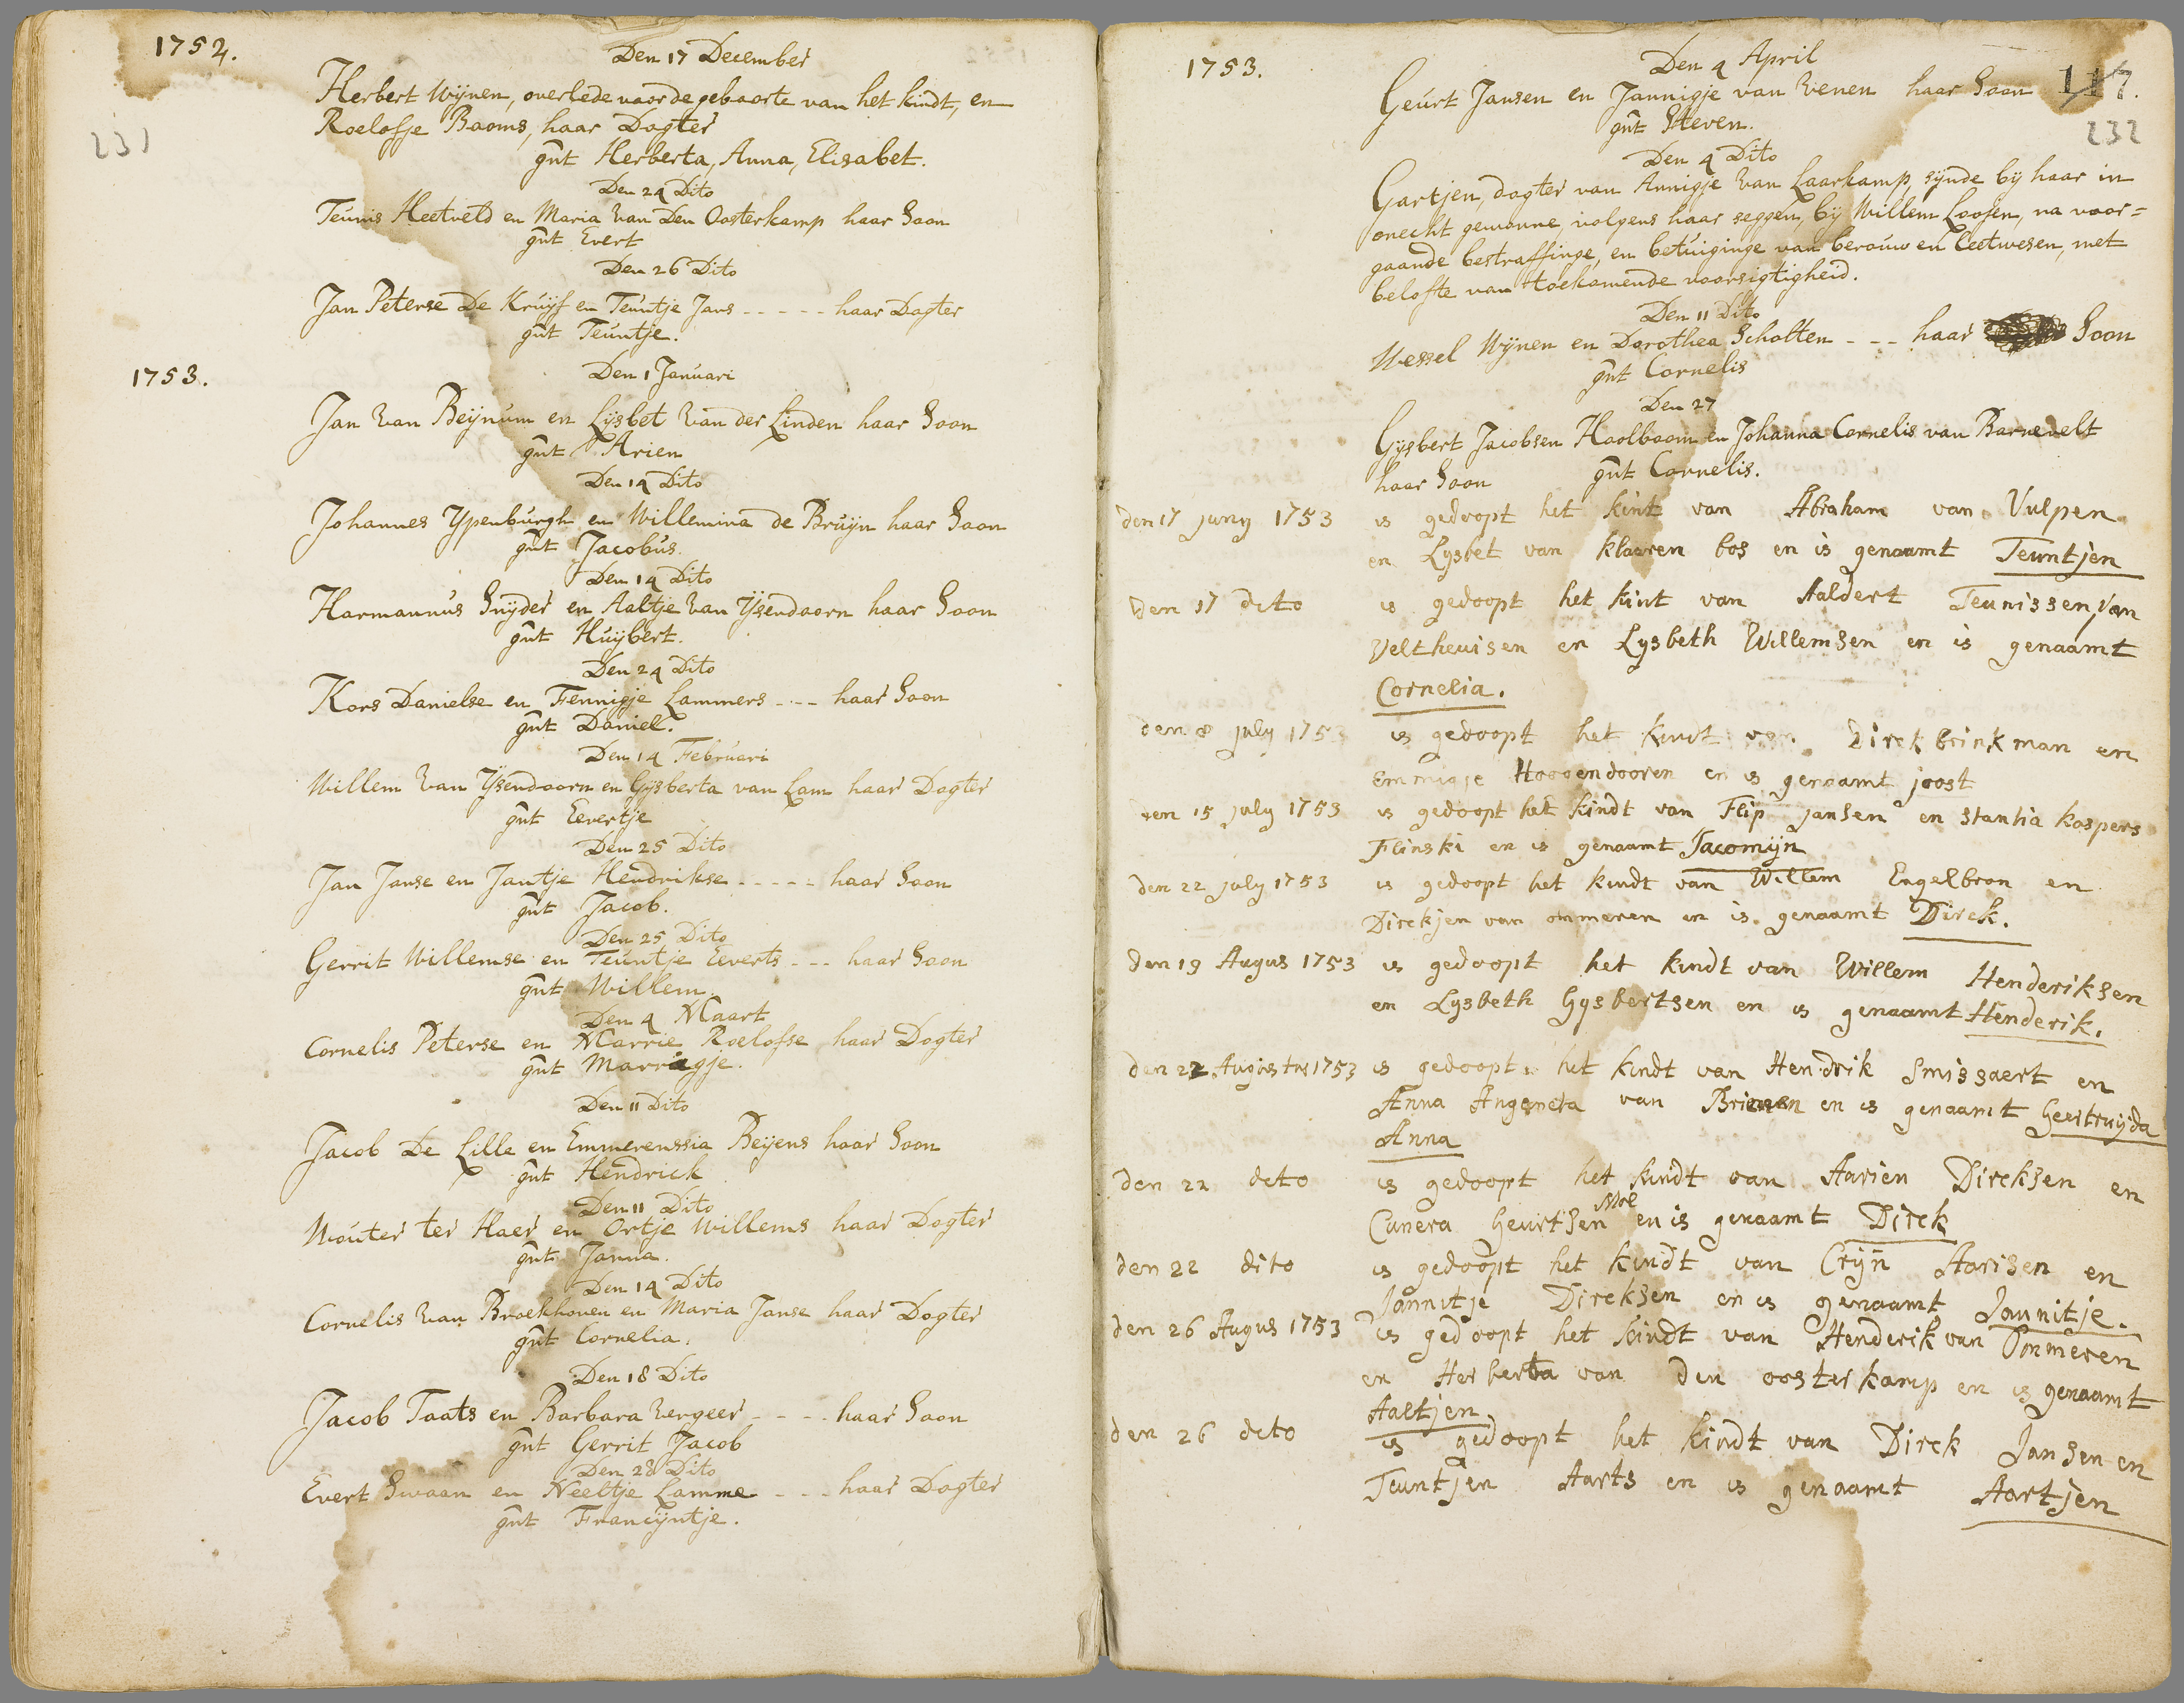 1752.
Den 17 December
Herbert Wijnen, overlede voor de geboorte van het kindt, en
Roelofje Baoms, haar Dogter
gnt Herberta, Anna, Elisabet.
231
Den 24 Dito
Teunis Heetveld en Maria Van Den Oosterkamp haar Soon
gnt Evert
Den 26 Dito
Jan Peterse De Kruijf en Teuntje Jans ----- haar Dogter
gnt Teuntje.
1753.
Den 1 Januari
Jan Van Beijnum en Lijsbet Van der Linden haar Soon
gnt Arien
Den 14 Dito
Johannes Ypenburgh en Willemina de Bruijn haar Soon
gnt Jacobus.
Den 14 Dito
Harmannus Snijder en Aaltje Van Ysendoorn haar Soon
gnt Huijbert.
Den 24 Dito
Kors Danielse en Fennigje Lammers ---- haar Soon
gnt Daniel.
Den 14 Februari
Willem Van Ysendoorn en Gijsberta van Lam haar Dogter
gnt Eevertje
Den 25 Dito
Jan Janse en Jantje Hendrikse ----- haar Soon
gnt Jacob.
Den 25 Dito
Gerrit Willemse en Teuntje Everts --- haar Soon
gnt Willem.
Den 4 Maart
Cornelis Peterse en Marrie Roelofse haar Dogter
gnt Marrigje.
Den 11 Dito
Jacob De Lille en Emmerenssia Beijens haar Soon
gnt Hendrick
Den 11 Dito
Wouter ter Haer en Ortje Willems haar Dogter
gnt Janna.
Den 14 Dito
Cornelis Van Broekhoven en Maria Janse haar Dogter
gnt Cornelia.
Den 18 Dito
Jacob Taats en Barbara Vergeer ---- haar Soon
gnt Gerrit Jacob
Den 28 Dito
Evert Swaan en Neeltje Lamme --- haar Dogter
gnt Francijntje.
1753.
Den 4 April
117.
Geurt Jansen en Jannigje van Venen haar Soon
gnt Steven.
232
Den 4 Dito
Gartjen, dogter van Annigje Van Laarkamp, sijnde bij haar in
onecht gewonne, volgens haar seggen, bij Willem Loosen, na voor=
gaande bestraffinge, en betuiginge van berouw en leetwesen, met
belofte van toekomende voorsigtigheid.
Den 11 Dito
Wessel Wijnen en Dorothea Scholten --- haar Soon
gnt Cornelis
Den 27
Gijsbert Jacobsen Haolboom en Johanna Cornelis van Barnevelt
haar Soon gnt Cornelis.
den 17 juny 1753 is gedoopt het kint van Abraham van Vulpen
en Lysbet van klaeren bos en is genaamt Teuntjen
den 17 dito is gedoopt het kint van Aaldert Teunissen Van
Veltheuisen en Lysbeth Willemsen en is genaamt
Cornelia.
den 8 july 1753 is gedoopt het kindt van Dirck brinkman en
Emmigje Hoogendooren en is genaamt joost
den 15 july 1753 is gedoopt het kindt van Flip jansen en stantia kaspers
Flinski en is genaamt Jacomijn
den 22 july 1753 is gedoopt het kindt van Willem Engelbron en
Dirckjen van ommeren en is genaamt Dirck.
den 19 Augus 1753 is gedoopt het kindt van Willem Henderiksen
en Lysbeth Gysbertsen en is genaamt Henderik.
den 22 Augustus 1753 is gedoopt het kindt van Hendrik Smissaert en
Anna Angeneta van Brienen en is genaamt Geertruijda
Anna
den 22 dito is gedoopt het kindt van Aarien Dircksen en
Cunera Geurtsen en is genaamt Dirck
den 22 dito is gedoopt het kindt van Crijn Aarisen en
Jannitje Dircksen en is genaamt Jannitje.
den 26 Augus 1753 is gedoopt het kindt van Henderik van Ommeren
en Herberta van den oosterkamp en is genaamt
Aaltjen.
den 26 dito is gedoopt het kindt van Dirck Jansen en
Teuntjen Aarts en is genaamt Aartjen